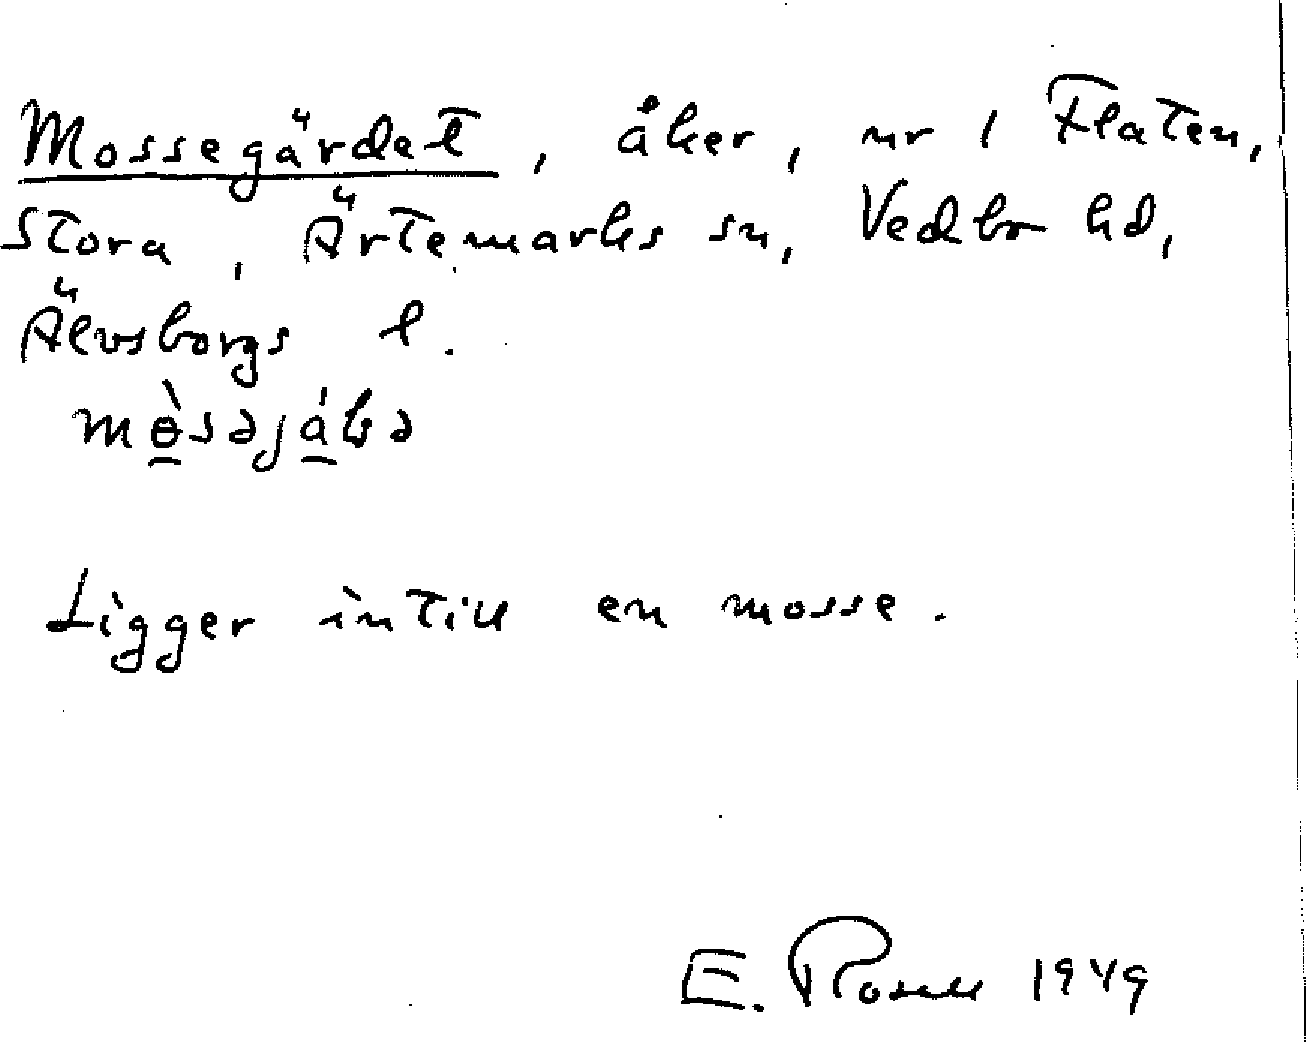 Mossegärdet, åker, nr 1 Flaten,
Stora, Ärtemarks sn, Vedbo hd,
Älvsborgs l.
Ligger intill en mosse.
E. Rosell 1949